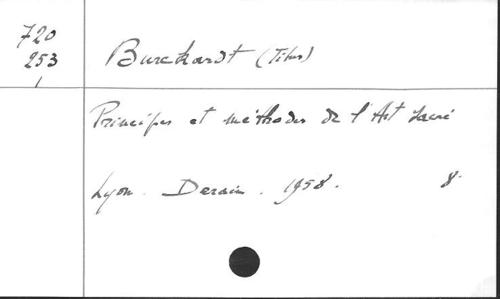 720
253
1
Burckardt (Titus)
Principes et méthodes de l'Art Sacré
Lyon. Derain. 1958. 8°